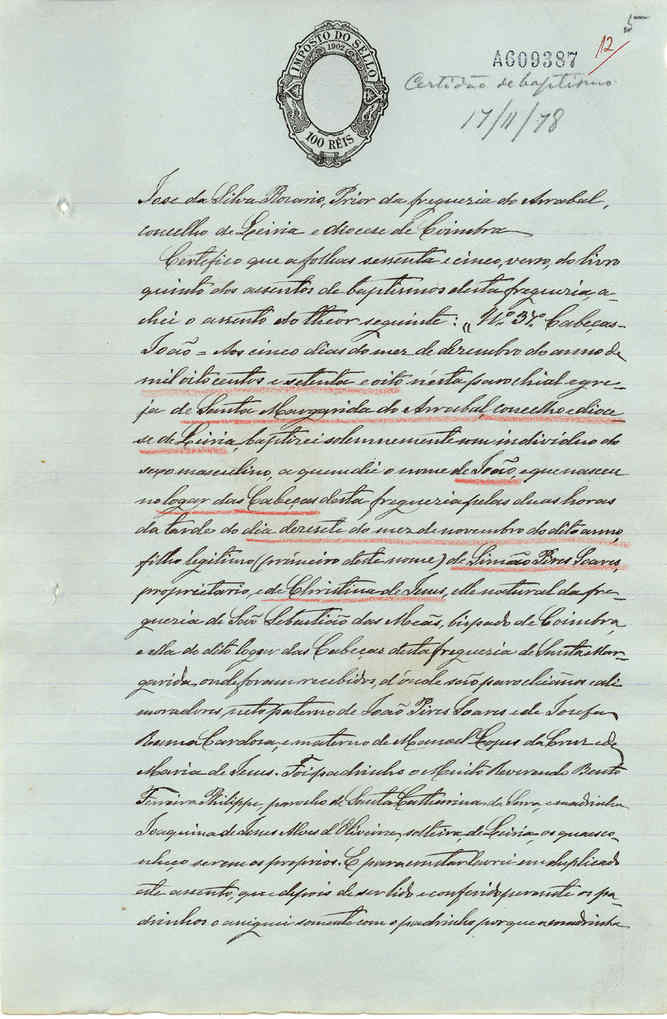 5
12
A609387
IMPOSTO DO SELLO
1902
100 RÉIS
Certidão de baptismo
17/11/78
Jose da Silva Rosario, Prior da freguezia do Arrabal,
concelho de Leiria e diocese de Coimbra
Certifico que a folhas sessenta e cinco, verso, do livro
quinto dos assentos de baptismos desta freguezia, a-
chei o assento do theor seguinte: "Nº 37. Cabeças-
João = Aos cinco dias do mez de dezembro do anno de
mil oito centos e setenta e oito n'esta parochial egre-
ja de Santa Margarida do Arrabal concelho e dioce
se de Leiria, baptizei solemnemente um individuo do
sexo masculino, a quem dei o nome de João, e que nasceu
no logar das Cabeças desta freguezia pelas duas horas
da tarde do dia dezesete do mez de novembro do dito anno,
filho legitimo (primeiro deste nome) de Simão Pires Soares,
proprietario, e de Christina de Jesus, elle natural da fre-
guezia de São Sebastião das Meãs, bispado de Coimbra,
e ella do dito logar das Cabeças desta freguezia de Santa Mar-
garida, onde foram recebidos, d'onde são parochianos e ali
moradores, neto paterno de João Pires Soares e de Josefa
Cardosa, e materno de Manoel Lopes da Cruz e de
Maria de Jesus. Foi padrinho o Muito Reverendo Bento
Ferreira Philippe, parocho de Santa Catharina da Serra, e madrinha
Joaquina de Jesus Alves d'Oliveira, solteira, de Leiria, os quaes co-
nheço serem os proprios. E para constar lavrei em duplicado
este assento, que depois de ser lido e conferido perante os pa-
drinhos o assignei somente com o padrinho porque a madrinha